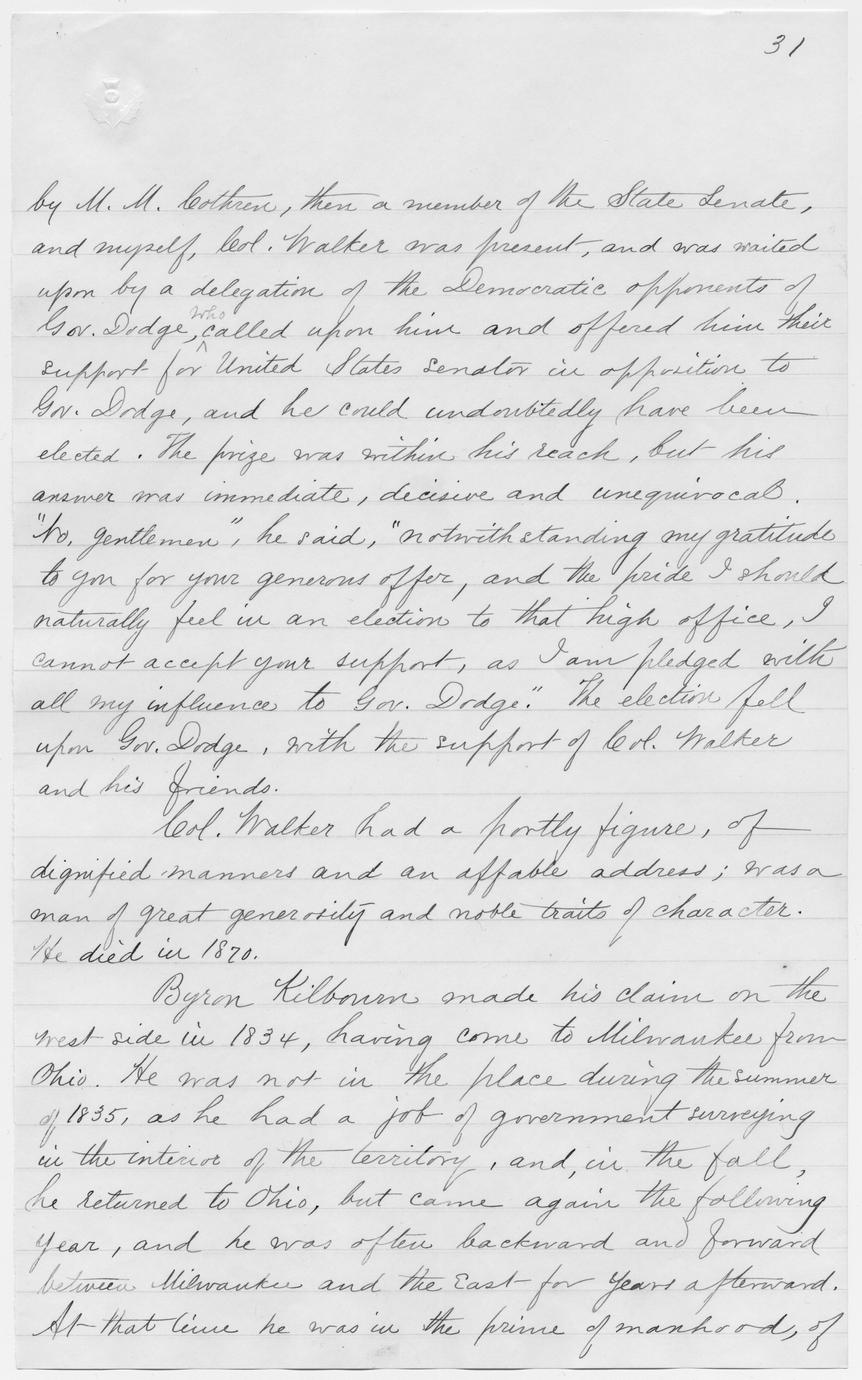 31
by M. M. Cothren, then a member of the State Senate,
and myself, Col. Walker was present, and was waited
upon by a delegation of the Democratic opponents of
Gov. Dodge, who called upon him and offered him their
support for United States senator in opposition to
Gov. Dodge, and he could undoubtedly have been
elected. The prize was within his reach, but his
answer was immediate, decisive and unequivocal.
"No, gentlemen", he said, "notwithstanding my gratitude
to you for your generous offer, and the pride I should
naturally feel in an election to that high office, I
cannot accept your support, as I am pledged with
all my influence to Gov. Dodge." The election fell
upon Gov. Dodge, with the support of Col. Walker
and his friends.
Col. Walker had a portly figure, of
dignified manners and an affable address; was a
man of great generosity and noble traits of character.
He died in 1870.
Byron Kilbourn made his claim on the
west side in 1834, having come to Milwaukee from
Ohio. He was not in the place during the summer
of 1835, as he had a job of government surveying
in the interior of the territory, and, in the fall,
he returned to Ohio, but came again the following
year, and he was often backward and forward
between Milwaukee and the East for years afterward.
At that time he was in the prime of manhood, of